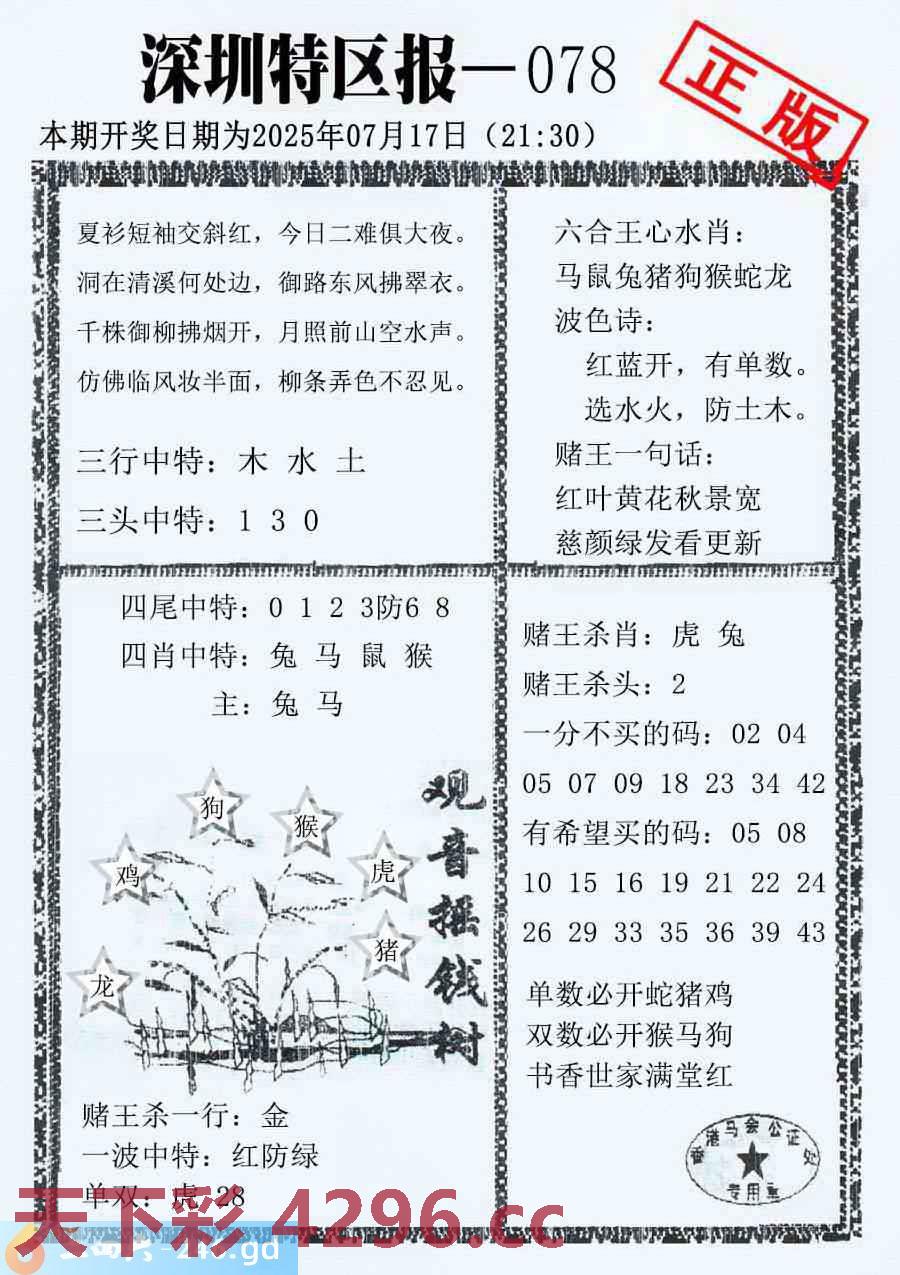 深圳特区报—078
正版
本期开奖日期为2025年07月17日（21:30）
夏衫短袖交斜红，今日二难俱大夜。
洞在清溪何处边，御路东风拂翠衣。
千株御柳拂烟开，月照前山空水声。
仿佛临风妆半面，柳条弄色不忍见。
三行中特：木 水 土
三头中特：1 3 0
六合王心水肖：
马鼠兔猪狗猴蛇龙
波色诗：
红蓝开，有单数。
选水火，防土木。
赌王一句话：
红叶黄花秋景宽
慈颜绿发看更新
四尾中特：0 1 2 3防6 8
四肖中特：兔 马 鼠 猴
主：兔 马
狗
猴
鸡
虎
猪
龙
观音摇钱树
赌王杀一行：金
一波中特：红防绿
单双：虎 28
赌王杀肖：虎 兔
赌王杀头：2
一分不买的码：02 04
05 07 09 18 23 34 42
有希望买的码：05 08
10 15 16 19 21 22 24
26 29 33 35 36 39 43
单数必开蛇猪鸡
双数必开猴马狗
书香世家满堂红
香港马会公证处
专用章
天下彩 4296.cc
246.gd